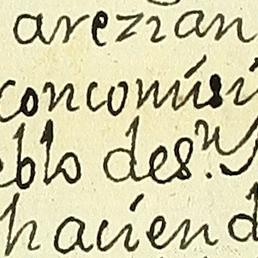 arezian
concomisi
eblo desn. S
haciend